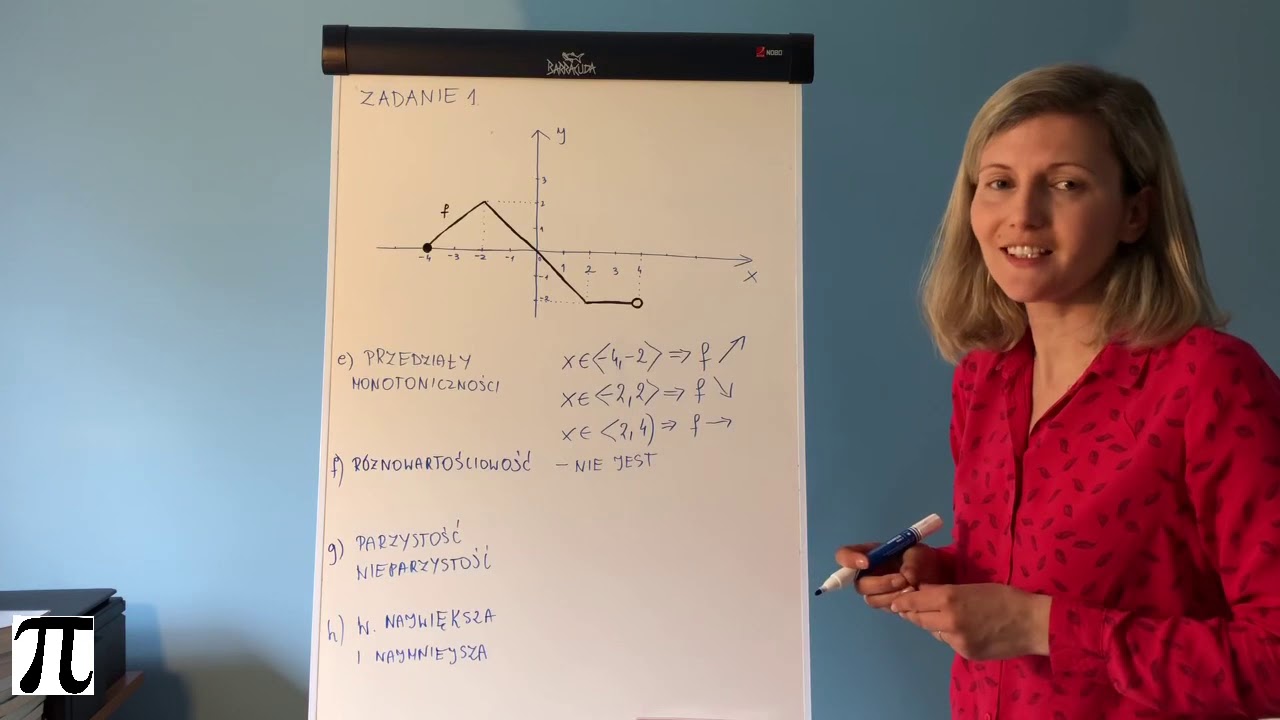 NOBO
BARRACUDA
ZADANIE 1.
y
3
f
2
1
-4 -3 -2 -1 0 1 2 3 4
x
-1
-2
e) PRZEDZIAŁY
MONOTONICZNOŚCI
x∈⟨-4,-2⟩ ⇒ f ↗
x∈⟨-2,2⟩ ⇒ f ↘
x∈ ⟨2,4) ⇒ f →
f) RÓŻNOWARTOŚCIOWOŚĆ - NIE JEST
g) PARZYSTOŚĆ
NIEPARZYSTOŚĆ
h) W. NAJWIĘKSZA
I NAJMNIEJSZA
π